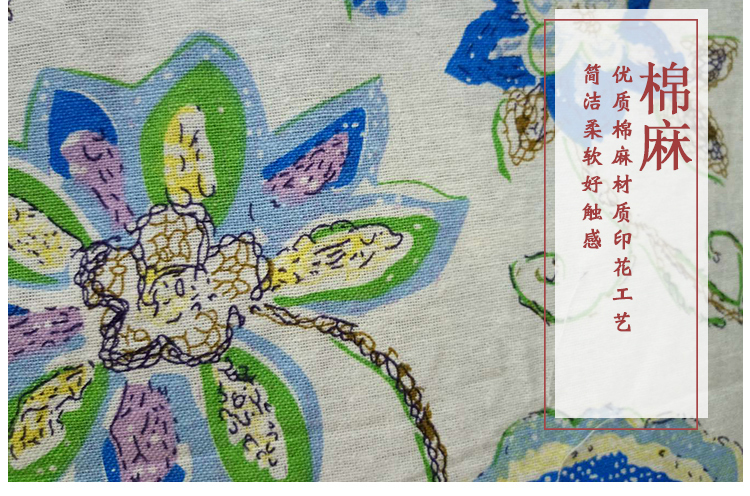 棉麻
优质棉麻材质印花工艺
简洁柔软好触感